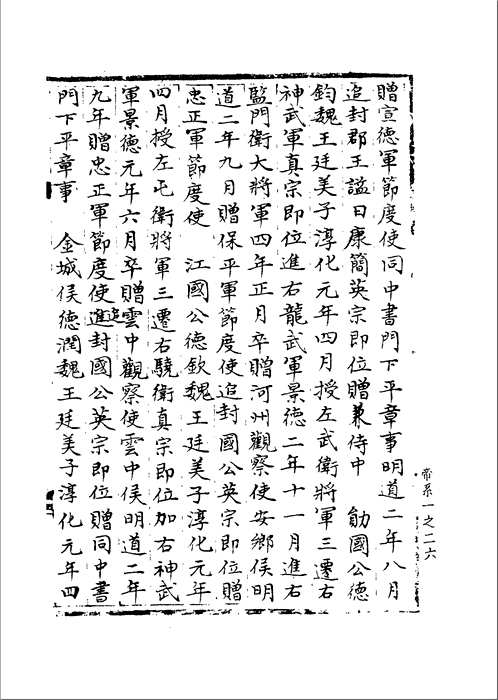 贈宣德軍節度使同中書門下平章事明道二年八月
追封郡王謚曰康簡英宗即位贈兼侍中　勛國公德
鈞魏王廷美子淳化元年四月授左武衛將軍三遷右
神武軍真宗即位進右龍武軍景德二年十一月進右
監門衛大將軍四年正月卒贈河州觀察使安鄉侯明
道二年九月贈保平軍節度使追封國公英宗即位贈
忠正軍節度使　江國公德欽魏王廷美子淳化元年
四月授左屯衛將軍三遷右驍衛真宗即位加右神武
軍景德元年六月卒贈雲中觀察使追雲中侯明道二年
九年贈忠正軍節度使進封國公英宗即位贈同中書
門下平章事　金城侯德潤魏王廷美子淳化元年四
帝系一之二六